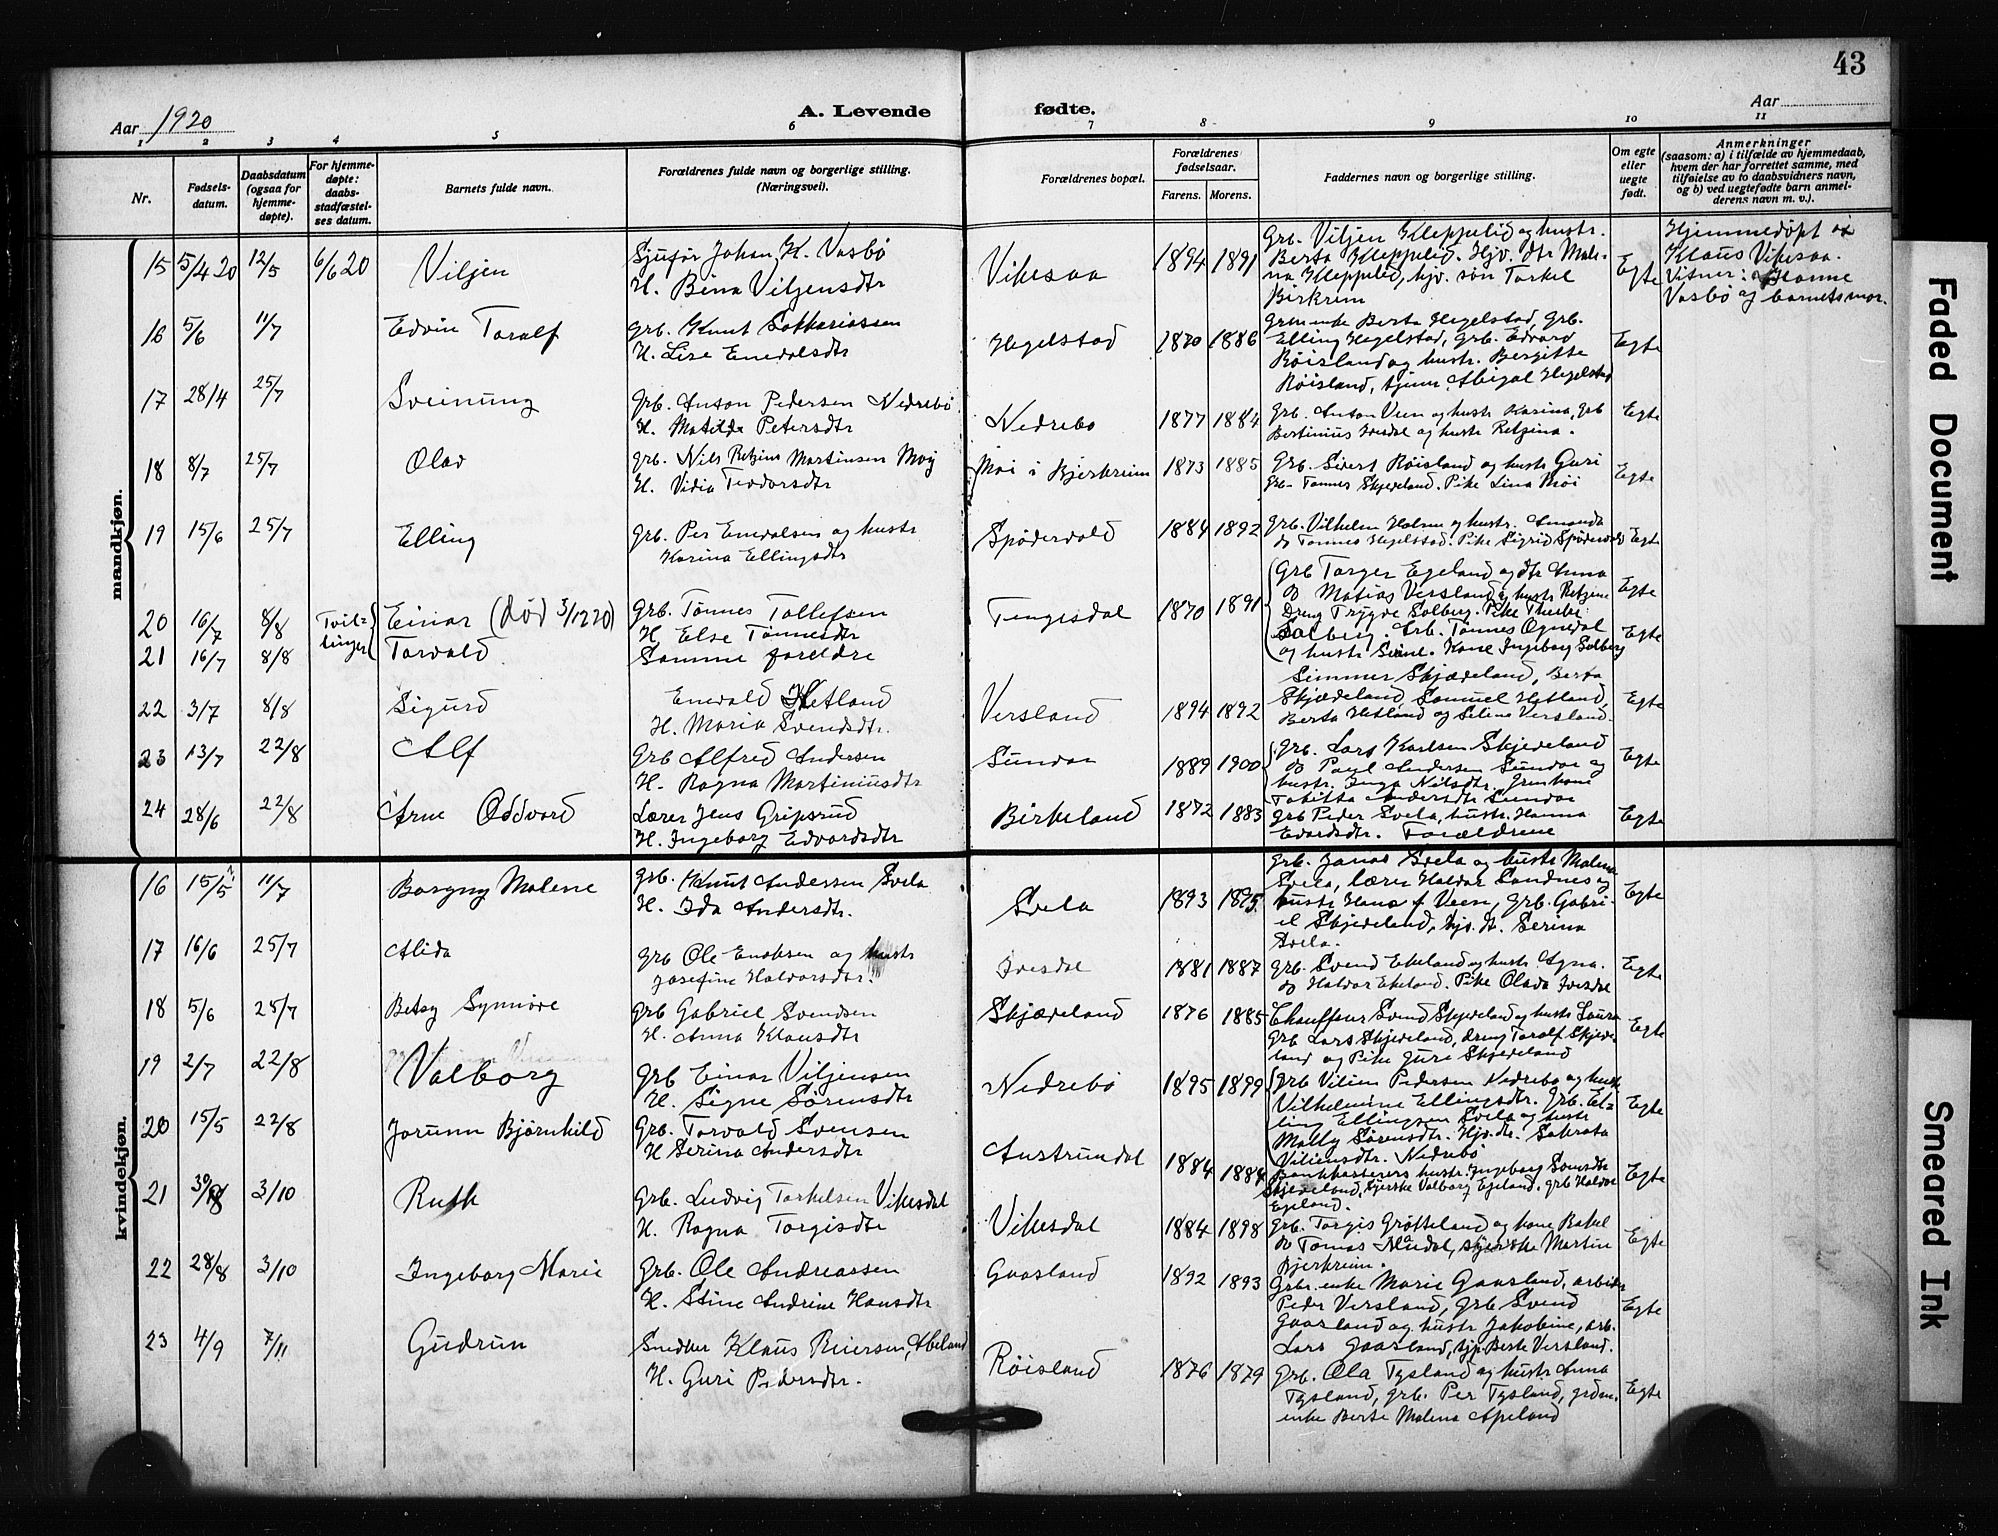 43
Aar 1920
A. Levende fødte.
Aar
1 2 3 4 5 6 7 8 9 10 11
Nr.
Fødsels-
datum.
Daabsdatum
(ogsaa for
hjemme-
døpte).
For hjemme-
døpte:
daabs-
stadfæstel-
ses datum.
Barnets fulde navn.
Forældrenes fulde navn og borgerlige stilling.
(Næringsvei).
Forældrenes bopæl.
Forældrenes
fødselsaar.
Farens. Morens.
Faddernes navn og borgerlige stilling.
Om egte
eller
uegte
født.
Anmerkninger
(saasom: a) i tilfælde av hjemmedaab,
hvem der har forrettet samme, med
tilføielse av to daabsvidners navn,
og b) ved uegtefødte barn anmel-
derens navn m. v.).
mandkjøn.
15 5/4 20 12/5 6/6 20 Viljen
Sjufør Johan K. Vasbø
H. Bina Viljensdtr
Vikesaa 1894 1891
Grb. Viljen Kleppelid og hustr.
Berta Kleppelid. Hjv. dtr Male-
na Kleppelid, hjv. søn Torkel
Birkrem
Egte
Hjemmedøpt av
Klaus Vikesaa.
Vitner: Hanne
Vasbø og barnets mor.
16 5/6 11/7 Edvin Toralf
Grb. Knut Sakkariassen
H. Lise Enevalsdtr
Hegelstad 1870 1886
Grm enke Berta Hegelstad, Grb.
Elling Hegelstad, Grb. Edvard
Røisland og hustr. Bergitte
Røisland, tjener Abigal Hegelstad
Egte
17 28/4 25/7 Sveinung
Grb. Anton Pedersen Nedrebø
H. Matilde Petersdtr
Nedrebø 1877 1884
Grb. Anton Veen og hustr Karina, Grb
Bertinius Ivesdal og hustr Retzina.
Egte
18 8/7 25/7 Olav
Grb. Nils Retzius Martinsen Moy
H. Vidia Teodorsdtr
Moi i Bjerkreim 1873 1885
Grb. Sivert Røisland og hustr Guri
Grb. Tønnes Skjeveland. Pike Lina Moi
Egte
19 15/6 25/7 Elling
Grb. Per Enevalsen og hustr
Karina Ellingsdtr
Spødervold 1884 1892
Grb. Vilhelm Holmen og hustr. Amanda
do Tønnes Hegelstad. Pike Sigrid Spødervold
Egte
20 16/7 8/8 Tvil-
linger
Einar (død 3/12 20)
Grb. Tønnes Tollefsen
H. Else Tønnesdtr
Tengesdal 1870 1891
21 16/7 8/8 Torvald
Samme foreldre
Grb Torger Egeland og dtr Anna
do Matias Versland og hustr Retzine
Dreng Trygve Solberg. Pike Thrine
Solberg. Arb. Tønnes Ognedal
og hustr Sine. Kone Ingeborg Solberg
Egte
Egte
22 3/7 8/8 Sigurd
Enevald Hetland
H. Maria Svendsdtr.
Versland 1894 1892
Simmer Skjæveland, Berta
Skjæveland, Samuel Hetland,
Berta Hetland og Selina Versland.
Egte
23 13/7 22/8 Alf
Grb Alfred Andersen
H. Ragna Martiniusdtr
Sundvor 1889 1900
Grb. Lars Karlsen Skjeveland
do Paul Andersen Sundvor og
hustr. Inga Nilsdtr. Grm kone
Tobitta Andersdtr Sundvor
Egte
24 28/6 22/8 Arne Oddvard
Lærer Jens Gripsrud
H. Ingeborg Edvardsdtr
Birkeland 1872 1883
Grb Peder Svela, hustr. Hanna
Edvardsdtr. Forældrene
Egte
kvindekjøn.
16 15/5 11/7 Borgny Malene
Grb. Knut Andersen Svela
H. Ida Andersdtr.
Svela 1893 1895
Grb. Jonas Svela og hustr Malene
Svela, lærer Haldor Sandnes og
hustr Hana f. Veen, Grb. Gabri-
el Skjeveland, hjv. dt. Serina
Svela.
Egte
17 16/6 25/7 Alida
Grb Ole Enoksen og hustr
Josefine Halvorsdtr.
Ivesdal 1881 1887
Grb. Svend Ekeland og hustr Agna.
do Haldor Ekeland. Pike Olava Ivesdal
Egte
18 5/6 25/7 Betsy Synnøve
Grb Gabriel Svendsen
H. Anna Klausdtr
Skjæveland 1876 1885
Chauffeur Svend Skjeveland og hustr Laura
Grb Lars Skjeveland, dreng Toralf Skjeve-
land og Pike Guri Skjeveland
Egte
19 2/7 22/8 Valborg
Grb Einar Viljensen
H. Signe Sørensdtr
Nedrebø 1895 1899
Grb Vilien Pedersen Nedrebø og hustr
Vilhelmine Ellingsdtr. Grb. El-
ling Ellingsen Svela og hustr
Molly Sørensdtr. Hjv. dr. Sakrata
Viliensdtr. Nedrebø
Egte
20 15/5 22/8 Jorunn Bjørnhild
Grb. Torvald Svensen
H Serina Andersdtr
Austrumdal 1884 1884
Bankkasserers hustr. Ingeborg Svensdtr
Skjeveland, Bjerske Valborg Egeland. Grb Haldor
Egeland.
Egte
21 30/8 3/10 Ruth
Grb. Ludvig Torkelsen Vikesdal
H. Ragna Torgisdtr
Vikesdal 1884 1898
Grb. Torgis Grøtteland og kone Rakel
do Tomas Nådal, Martin
Bjerkreim.
Egte
22 28/8 3/10 Ingeborg Marie
Grb. Ole Andreassen
H. Stine Andrine Hansdtr
Gaasland 1892 1893
Grbr. enke Marie Gaasland, arbeider
Peder Versland, Grb Svend
Gaasland og hustr Jakobine, arb.
Lars Gaasland, tjp. Berte Versland.
Egte
23 4/9 7/11 Gudrun
Snedker Klaus Reiersen, Apeland
H. Guri Pedersdtr.
Røisland 1876 1879
Grb. Ola Tysland og hustr Anna
Tysland, Grb. Per Tysland, grdm.
enke Berte Malena Apeland
Egte
Faded Document
Smeared Ink